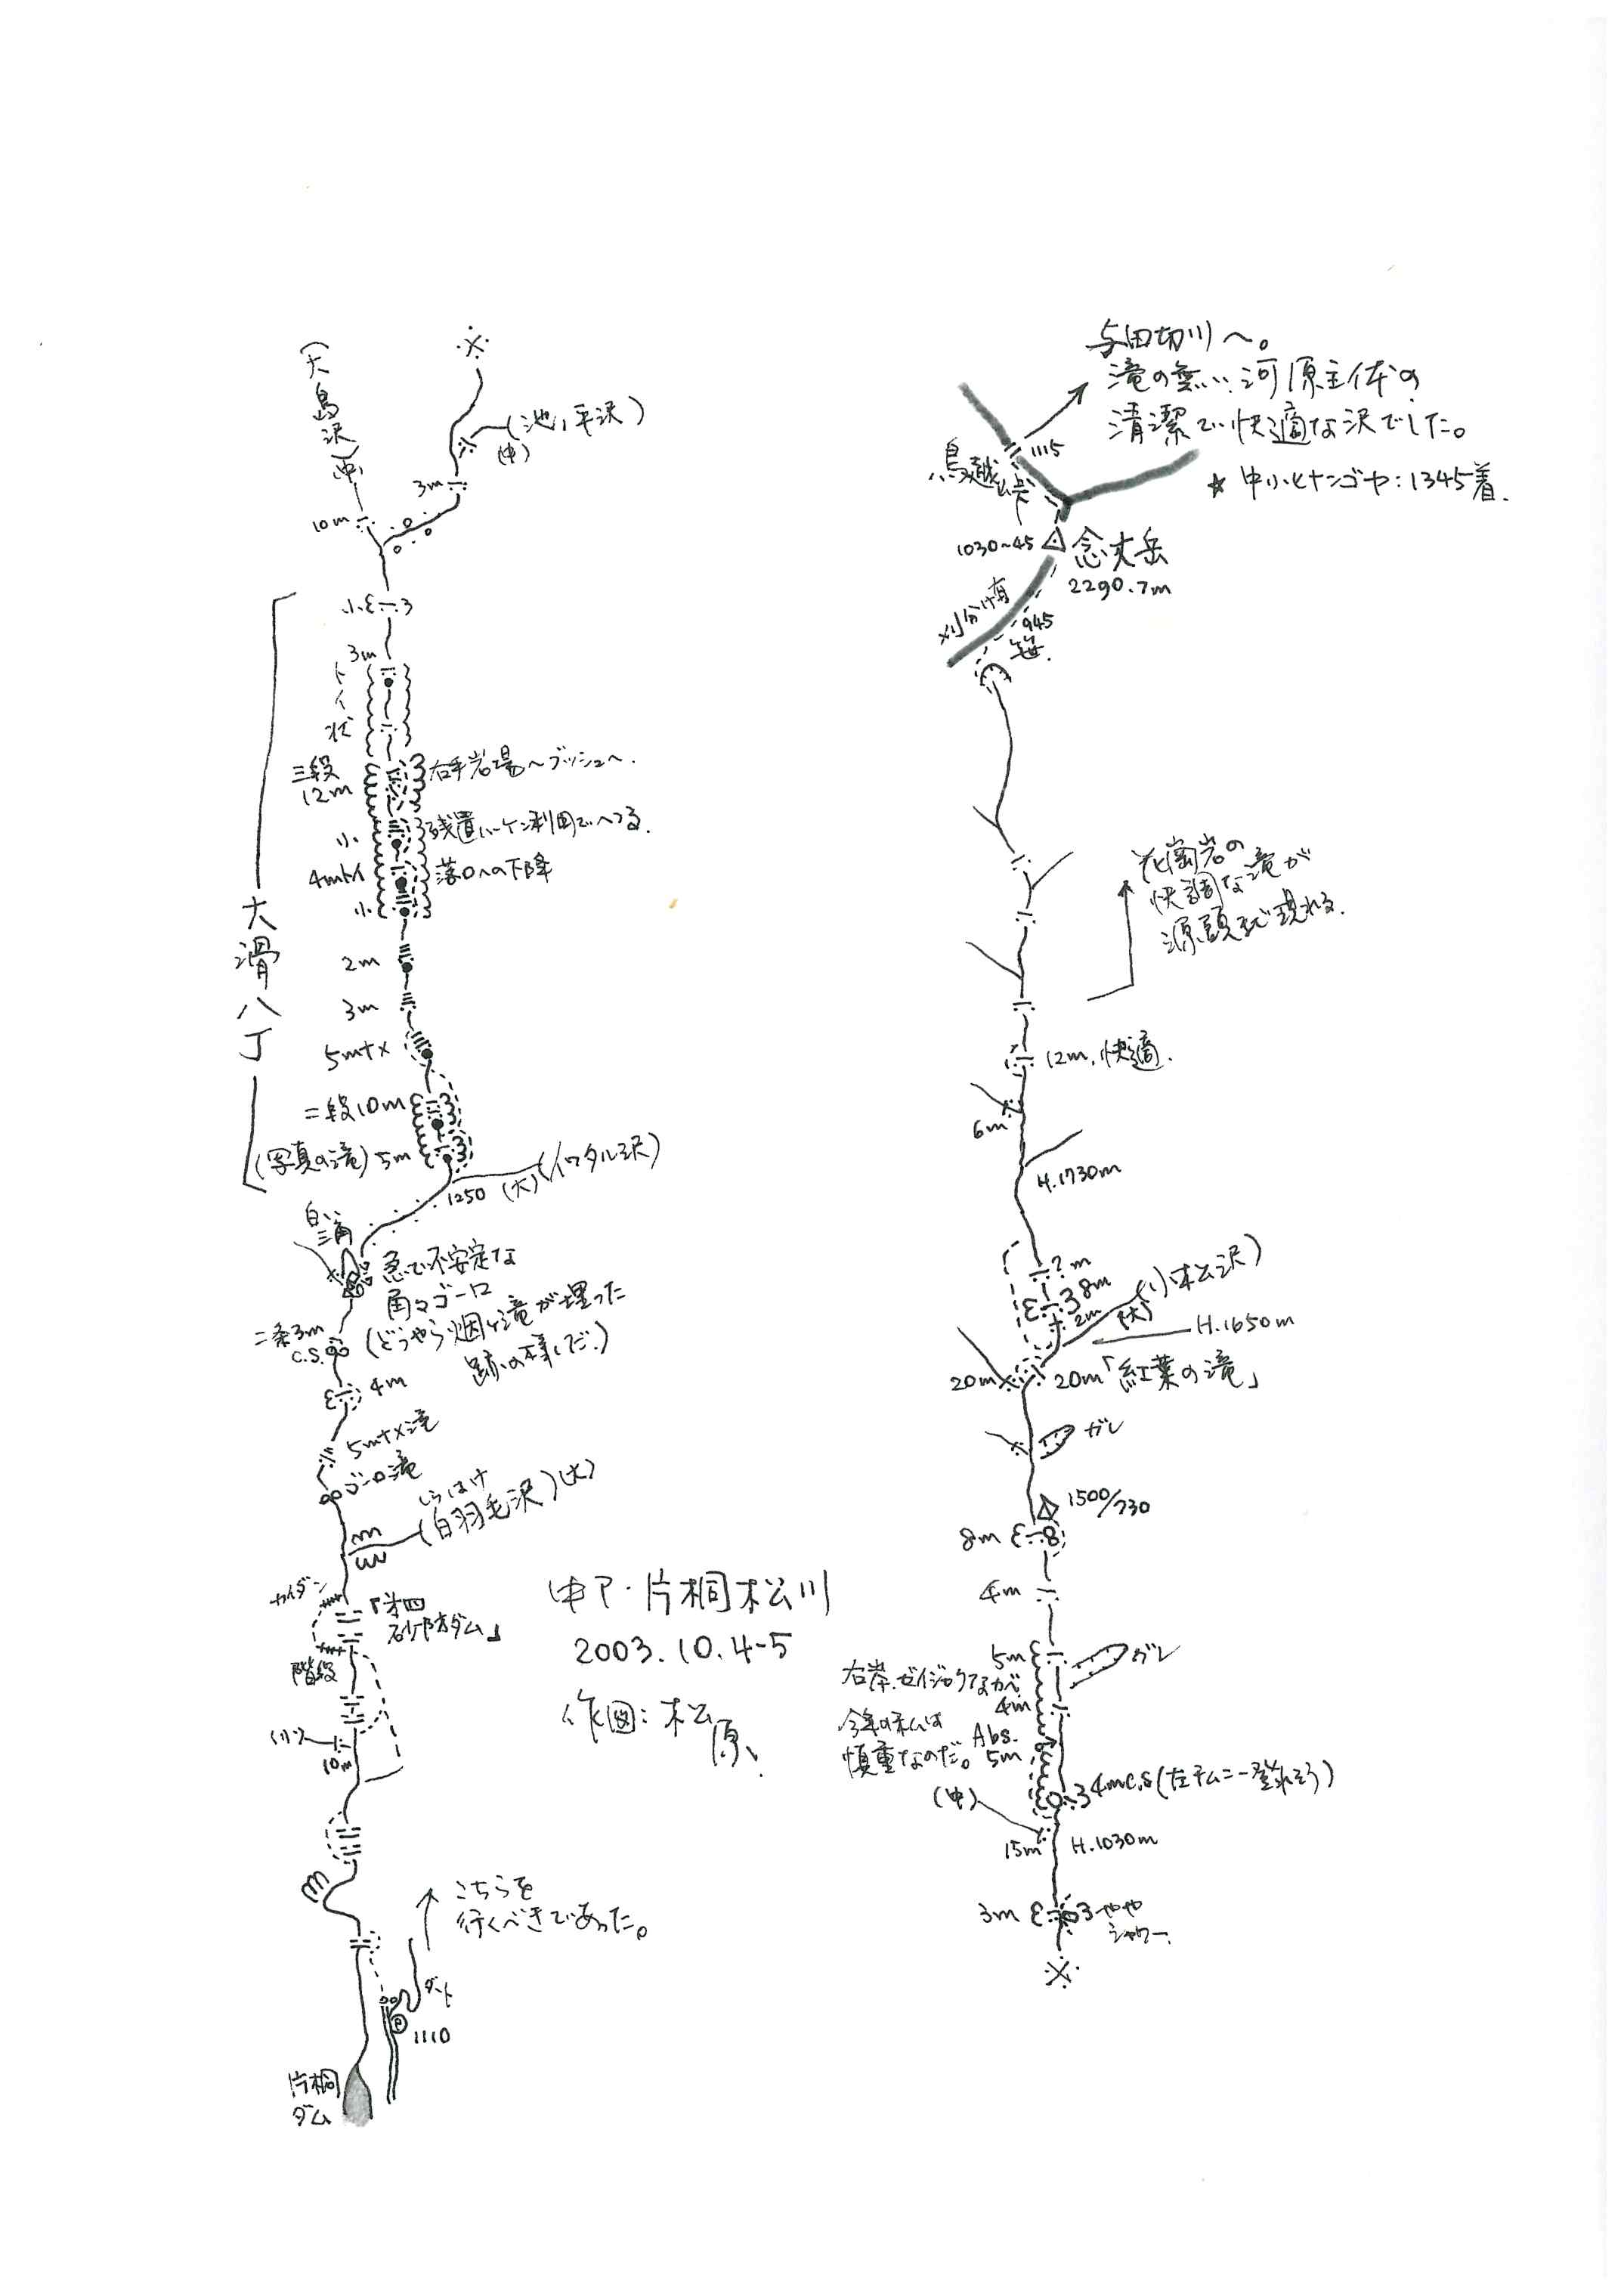 (大島沢)
(中)
(池ノ平沢)
(中)
3m
10m
小
3m
トイ状
三段
12m
右手岩場〜ブッシュへ.
小
残置ハーケン利用でへつる.
4mトイ
落口への下降
小
2m
3m
5mナメ
二段10m
(写真の滝) 5m
大滑八丁
(イワタル沢)
1250 (大)
白い
三角
急で不安定な
角々ゴーロ
(どうやら烟ヶ滝が埋った
跡の様だ。)
二条3m
C.S.
4m
5mナメ滝
ゴーロ滝
しらはけ
(白羽毛沢)(大)
カイダン
「第四
砂防ダム」
階段
10m
こちらを
行くべきであった。
ダート
P
1110
片桐
ダム
中ア・片桐松川
2003.10.4-5
作図:松原
与田切川へ。
滝の無い、河原主体の
清潔で快適な沢でした。
1115
烏越峠
★ 中小ヒナンゴヤ:1345着.
1030~45
念丈岳
2290.7m
刈分け有
945
笹.
花崗岩の
快調な滝が
源頭まで現れる.
12m.快適.
6m
H.1730m
?m
8m
2m
(大)
(小松沢)
H.1650m
20m
20m「紅葉の滝」
ガレ
1500/730
8m
4m
5m
ガレ
右岸.ゼイジャクなガベ
4m
今年の私は
慎重なのだ。
Abs.
5m
4mC.S(左チムニー登れそう)
(中)
15m
H.1030m
3m
やや
シャワー.